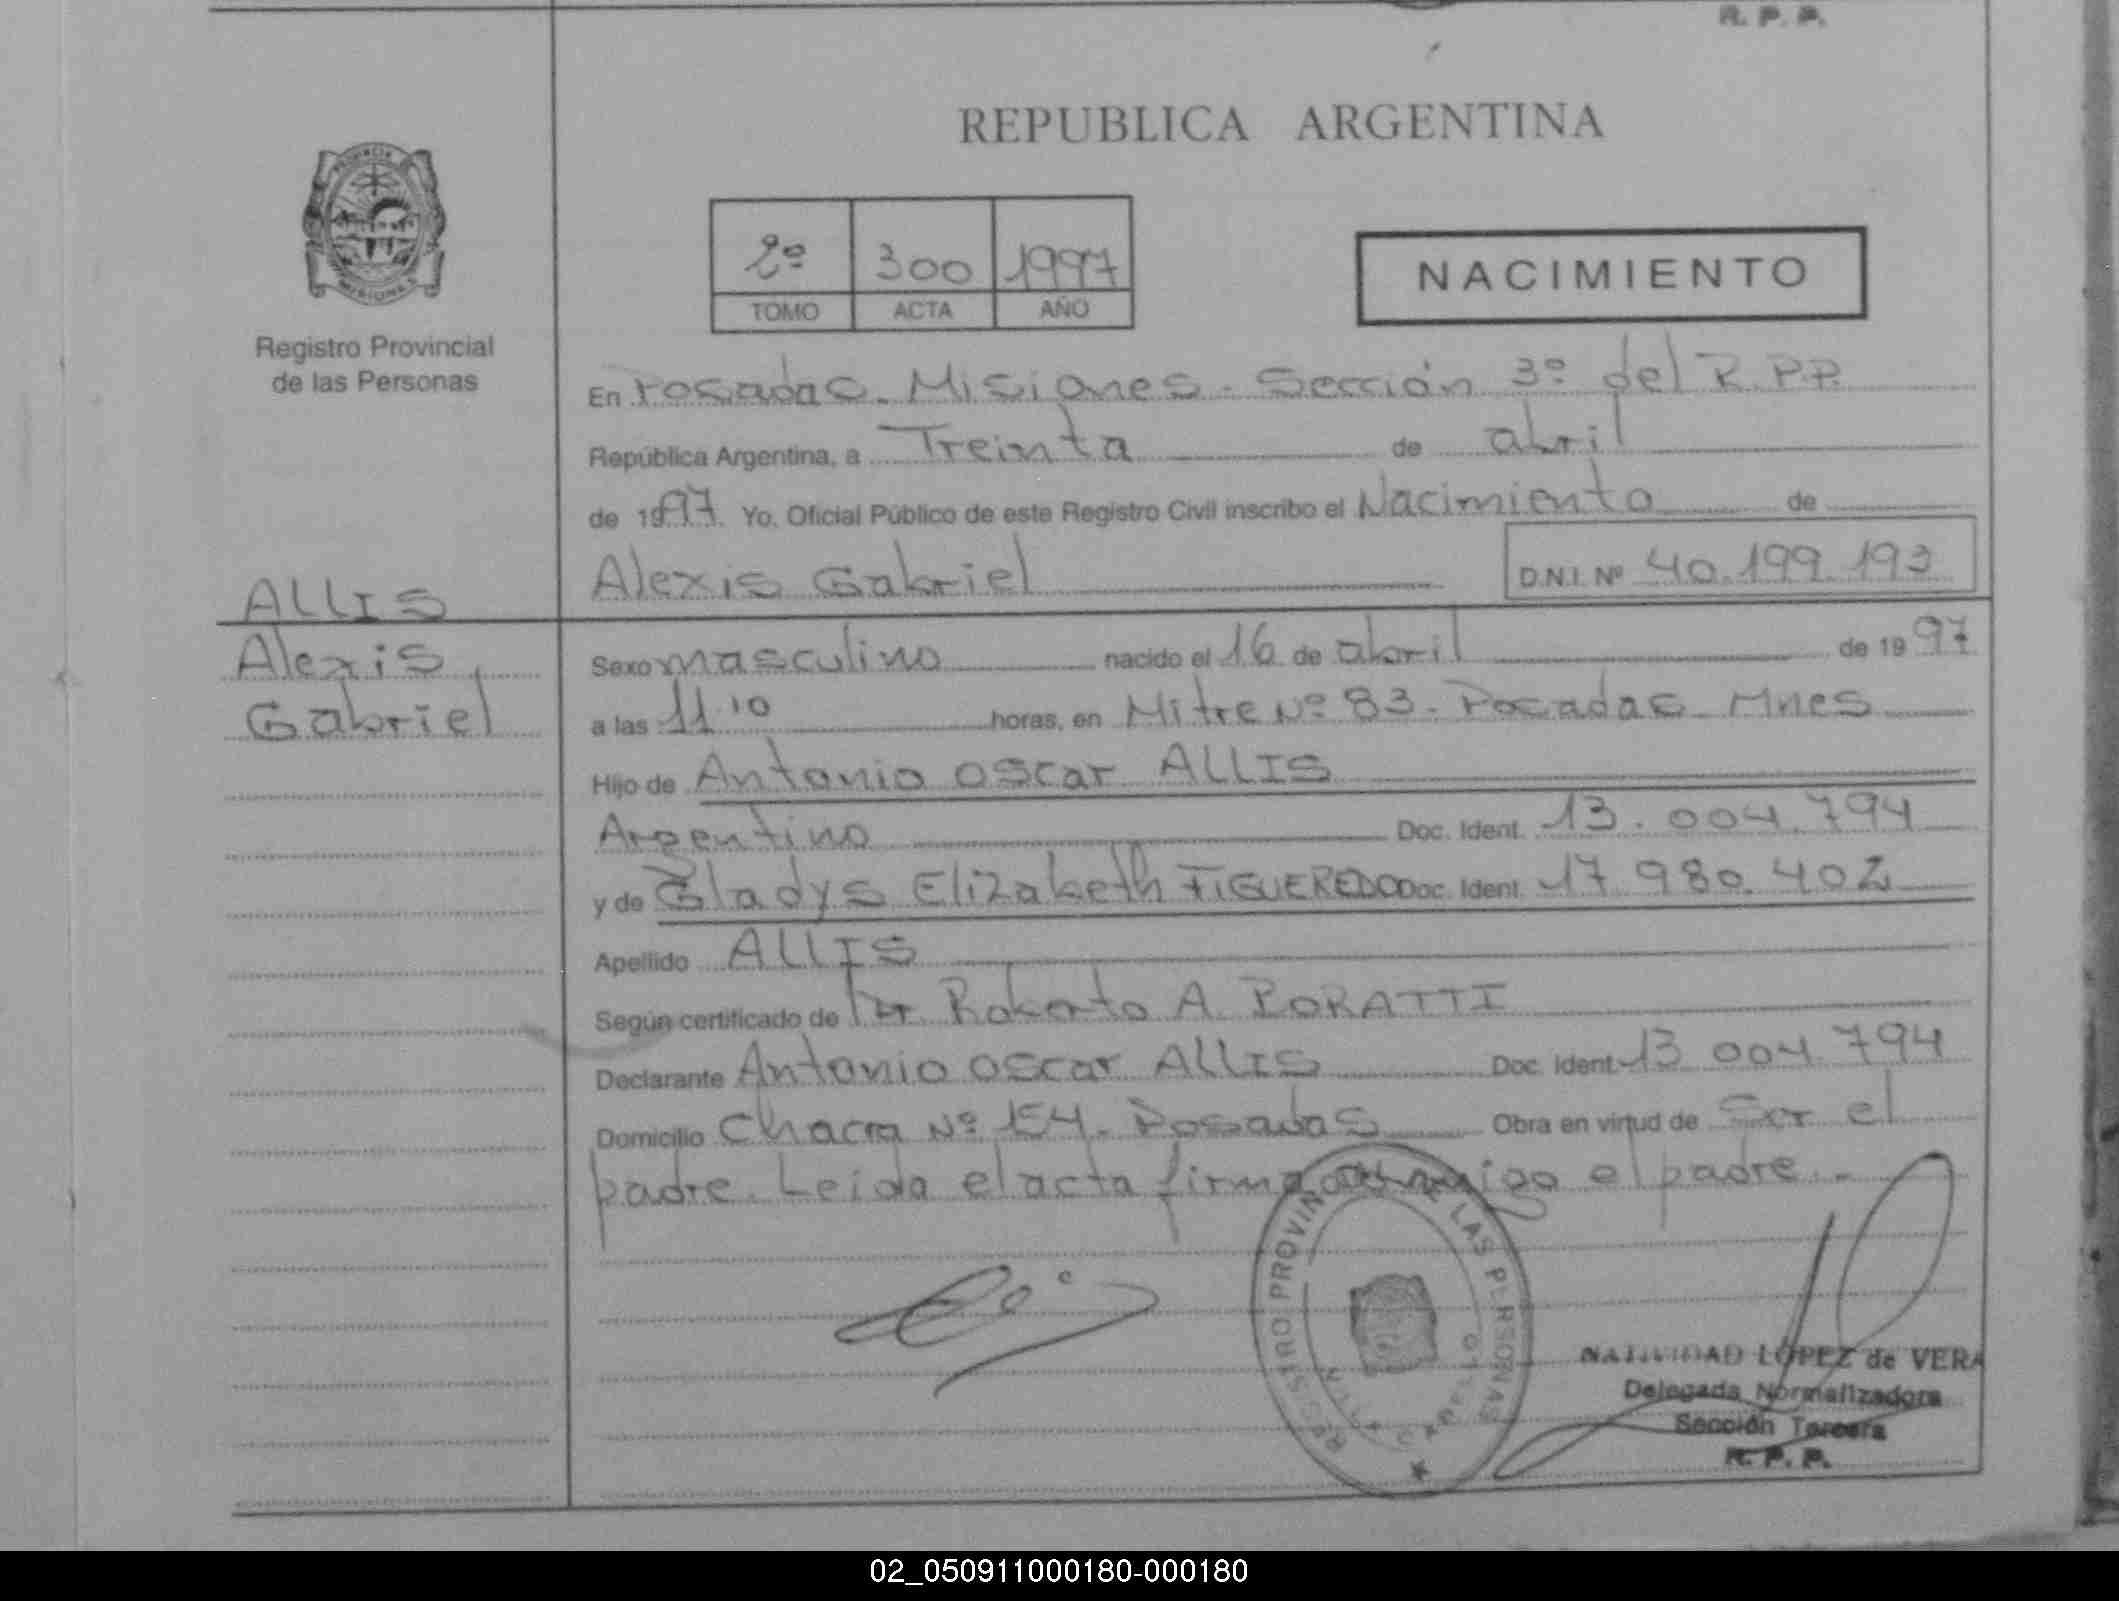 R. P. P.
REPUBLICA ARGENTINA
PROVINCIA
MISIONES
Registro Provincial
de las Personas
2º 300 1997
TOMO ACTA AÑO
NACIMIENTO
En Posadas. Misiones. Sección 3º del R.P.P.
República Argentina, a Treinta de abril
de 1997. Yo, Oficial Público de este Registro Civil inscribo el Nacimiento de
Alexis Gabriel D.N.I. Nº 40.199.193
ALLIS
Alexis
Gabriel
Sexo masculino nacido el 16 de abril de 1997
a las 11.10 horas, en Mitre Nº 83. Posadas Mnes
Hijo de Antonio oscar ALLIS
Argentino Doc. Ident. 13.004.794
y de Gladys Elizabeth FIGUEREDO Doc. Ident. 17.980.402
Apellido ALLIS
Según certificado de Dr Roberto A. PORATTI
Declarante Antonio oscar ALLIS Doc. Ident. 13 004.794
Domicilio Chacra Nº 154. Posadas Obra en virtud de Ser el
padre. Leida el acta firma conmigo el padre.-
REGISTRO PROVINCIAL DE LAS PERSONAS
NATIVIDAD LOPEZ de VERA
Delegada Normalizadora
Sección Tercera
R. P. P.
02_050911000180-000180